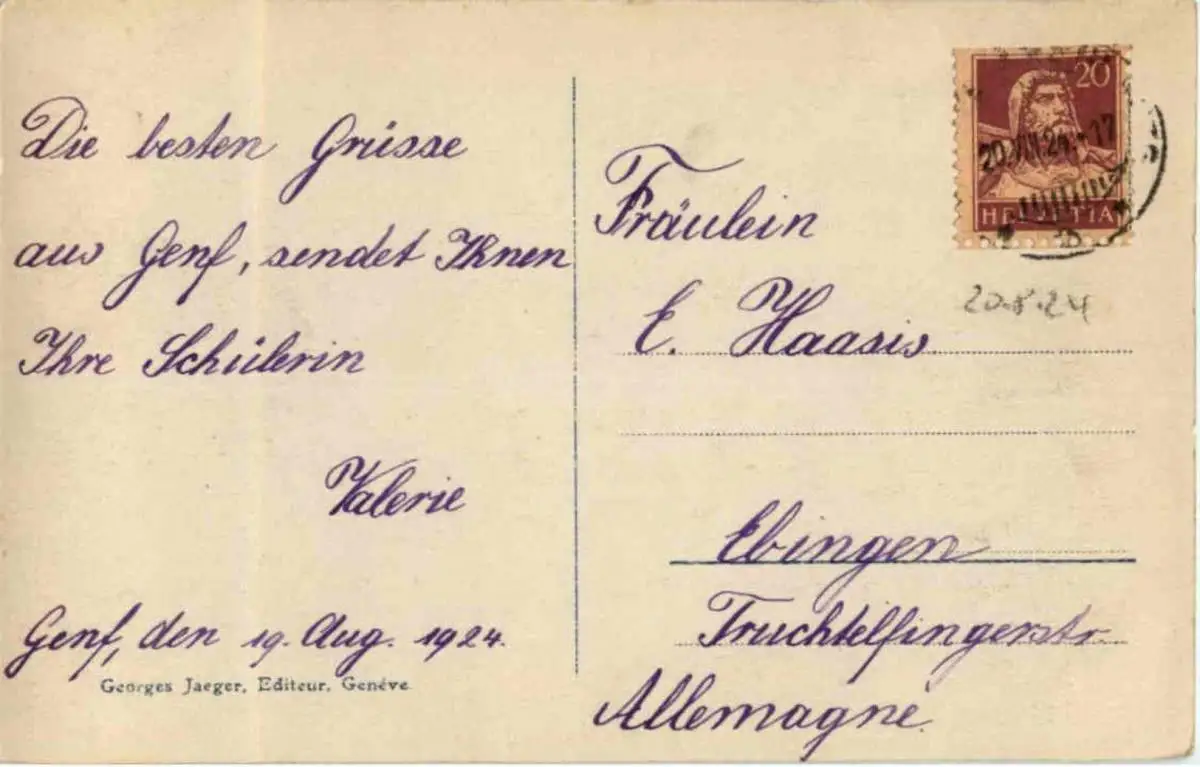 Die besten Grüsse
aus Genf, sendet Ihnen
Ihre Schülerin
Valerie
Genf, den 19. Aug. 1924.
Georges Jaeger, Editeur, Genève
20
HELVETIA
20.8.24
Fräulein
E. Haasis
Ebingen
Truchtelfingerstr.
Allemagne.